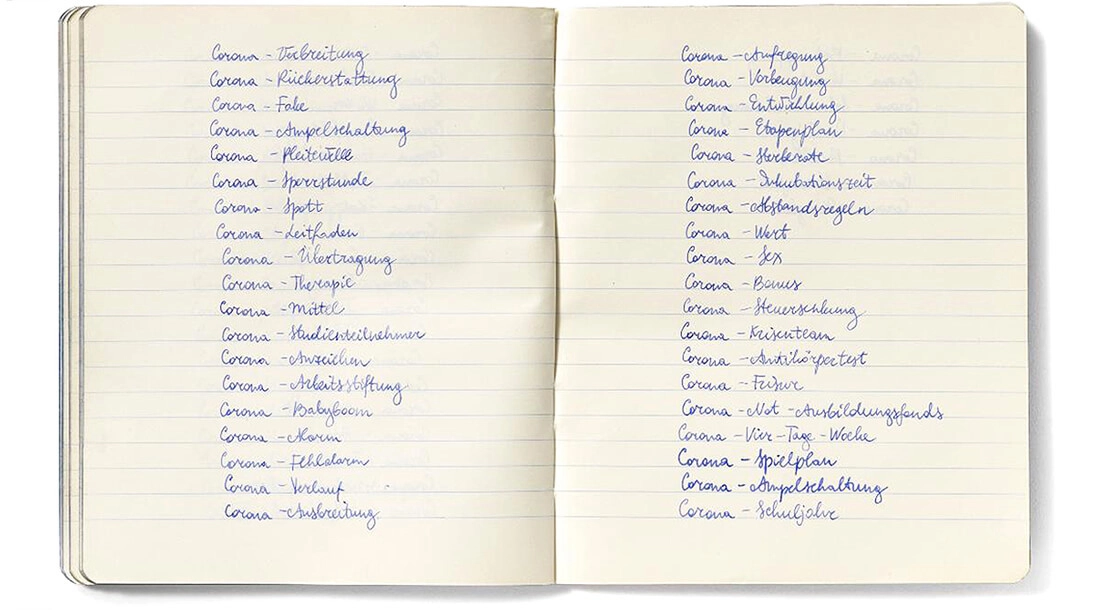 Corona - Verbreitung
Corona - Rückerstattung
Corona - Fake
Corona - Ampelschaltung
Corona - Pleitewelle
Corona - Sperrstunde
Corona - Spott
Corona - Leitfaden
Corona - Übertragung
Corona - Therapie
Corona - Mittel
Corona - Studienteilnehmer
Corona - Anzeichen
Corona - Arbeitsstiftung
Corona - Babyboom
Corona - Alarm
Corona - Fehlalarm
Corona - Verlauf
Corona - Ausbreitung
Corona - Aufregung
Corona - Vorbeugung
Corona - Entwicklung
Corona - Etapenplan
Corona - Sterberate
Corona - Inkubationszeit
Corona - Abstandsregeln
Corona - Wert
Corona - Sex
Corona - Bonus
Corona - Steuersenkung
Corona - Krisenteam
Corona - Antikörpertest
Corona - Frisur
Corona - Not - Ausbildungsfonds
Corona - Vier - Tage - Woche
Corona - Spielplan
Corona - Ampelschaltung
Corona - Schuljahr